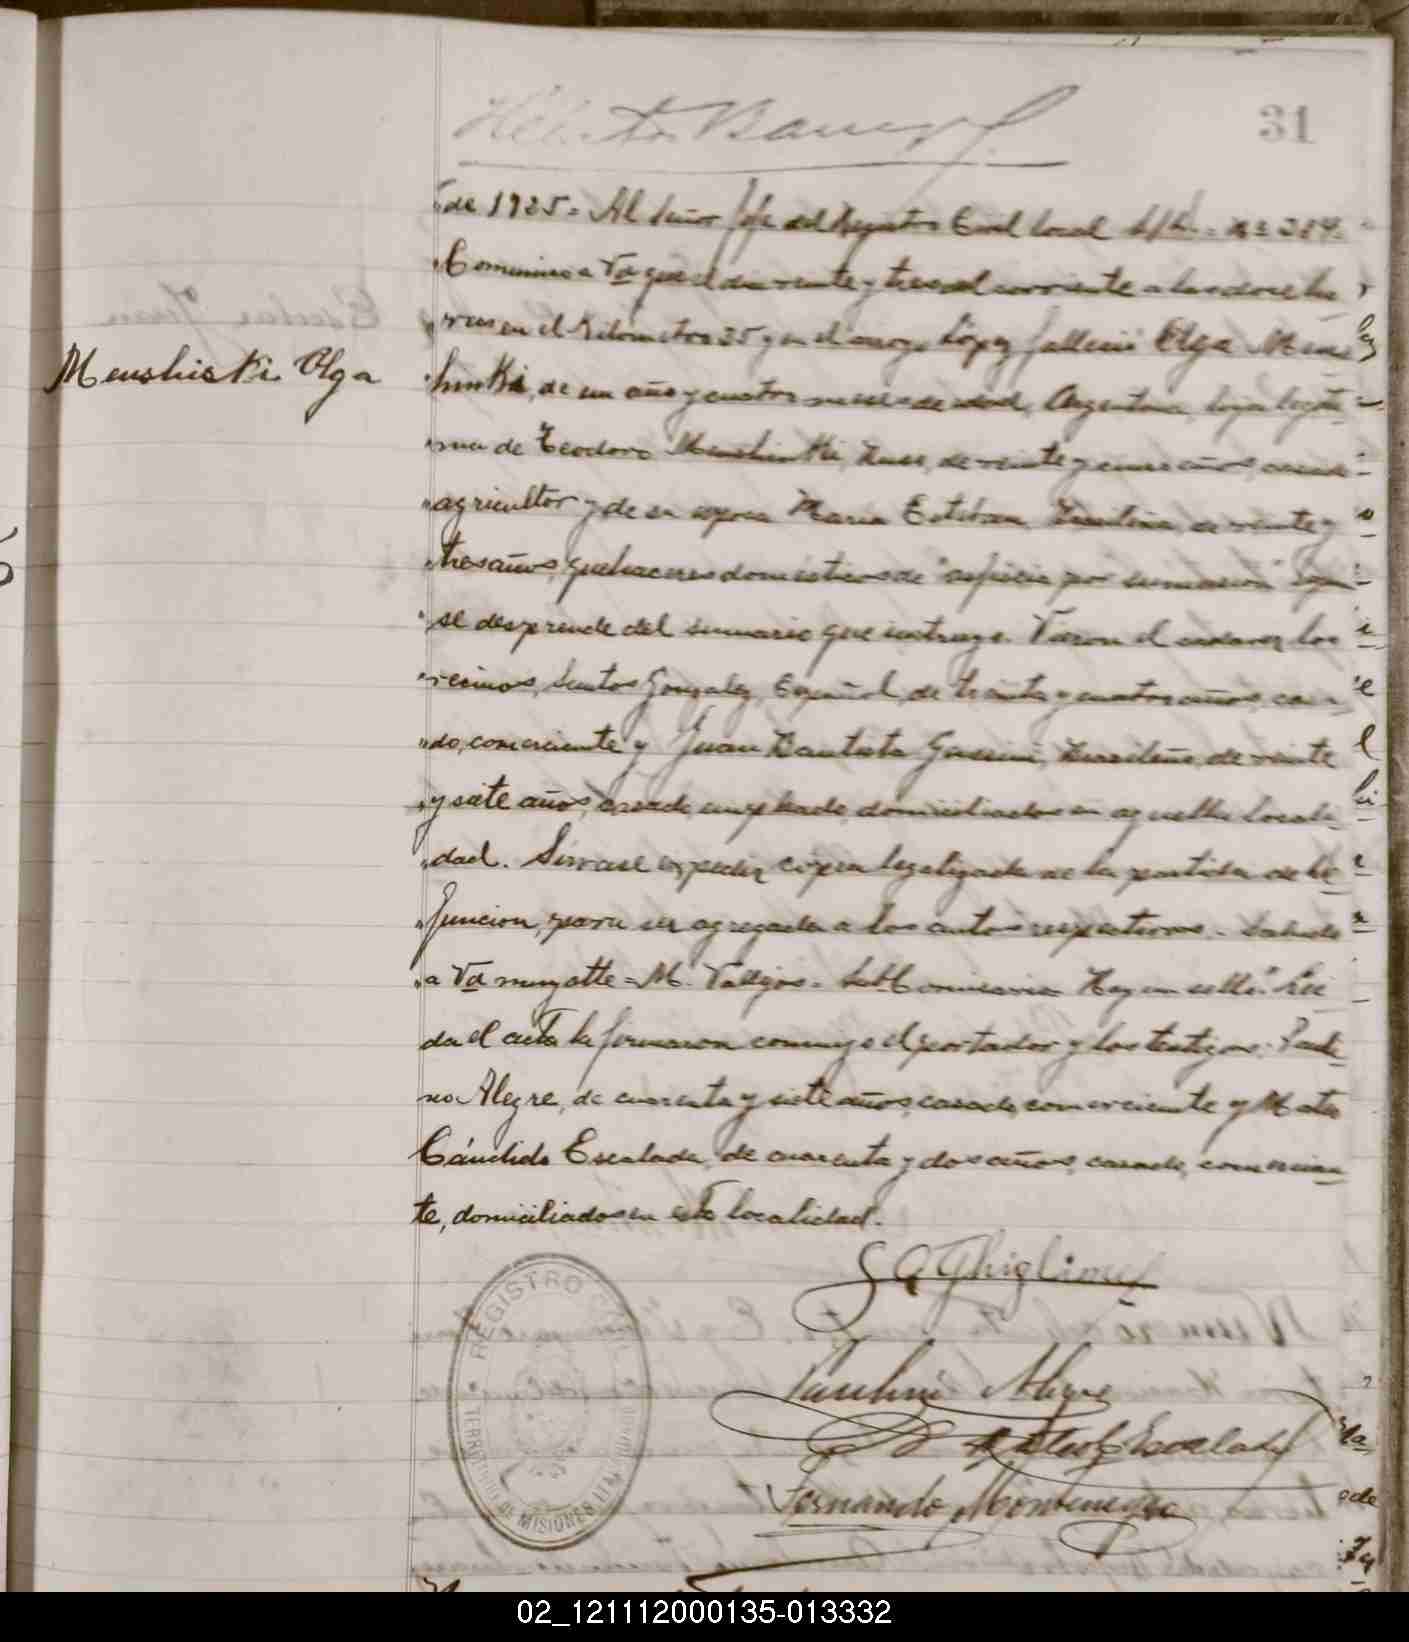 31
"de 1925. Al Señor Jefe del Registro Civil local S/D. Nº 219.
"Comunico a Vd que el dia veinte y tres del corriente a las doce ho
"ras en el Kilometro 35 y en el arroyo López falleció Olga Mens
Menshiski Olga
"hinski, de un año y cuatro meses de edad, Argentina, hija legiti
"ma de Teodoro Menshinski, Ruso, de veinte y cinco años, casado
"agricultor y de su esposa Maria Esteban, de veinte y
"tres años, quehaceres domesticos de "asficia por sumersion" segun
"se desprende del sumario que instruyo. Vieron el cadaver los
"vecinos, Santos Gonzalez, Español, de treinta y cuatro años, casa
"do, comerciante y Juan Bautista Brasileño, de veinte
"y siete años, casado, empleado, domiciliados en aquella locali
"dad. Sirvase expedir copia legalizada de la partida de de
"funcion, para ser agregada a los autos respectivos. Saludo
"a Vd muy atte = M. Vallejos. Sub Comisario Hay un sello". Lei
da el acta la firmaron conmigo el portador y los testigos: Pauli
no Alegre, de cuarenta y siete años, casado, comerciante y
Cándido Escalada, de cuarenta y dos años, casado, comercian
te, domiciliados en esta localidad.
S Q Ghiglione
Paulino Alegre
Escalada
Fernando
REGISTRO CIVIL
TERRITORIO DE MISIONES
02_121112000135-013332